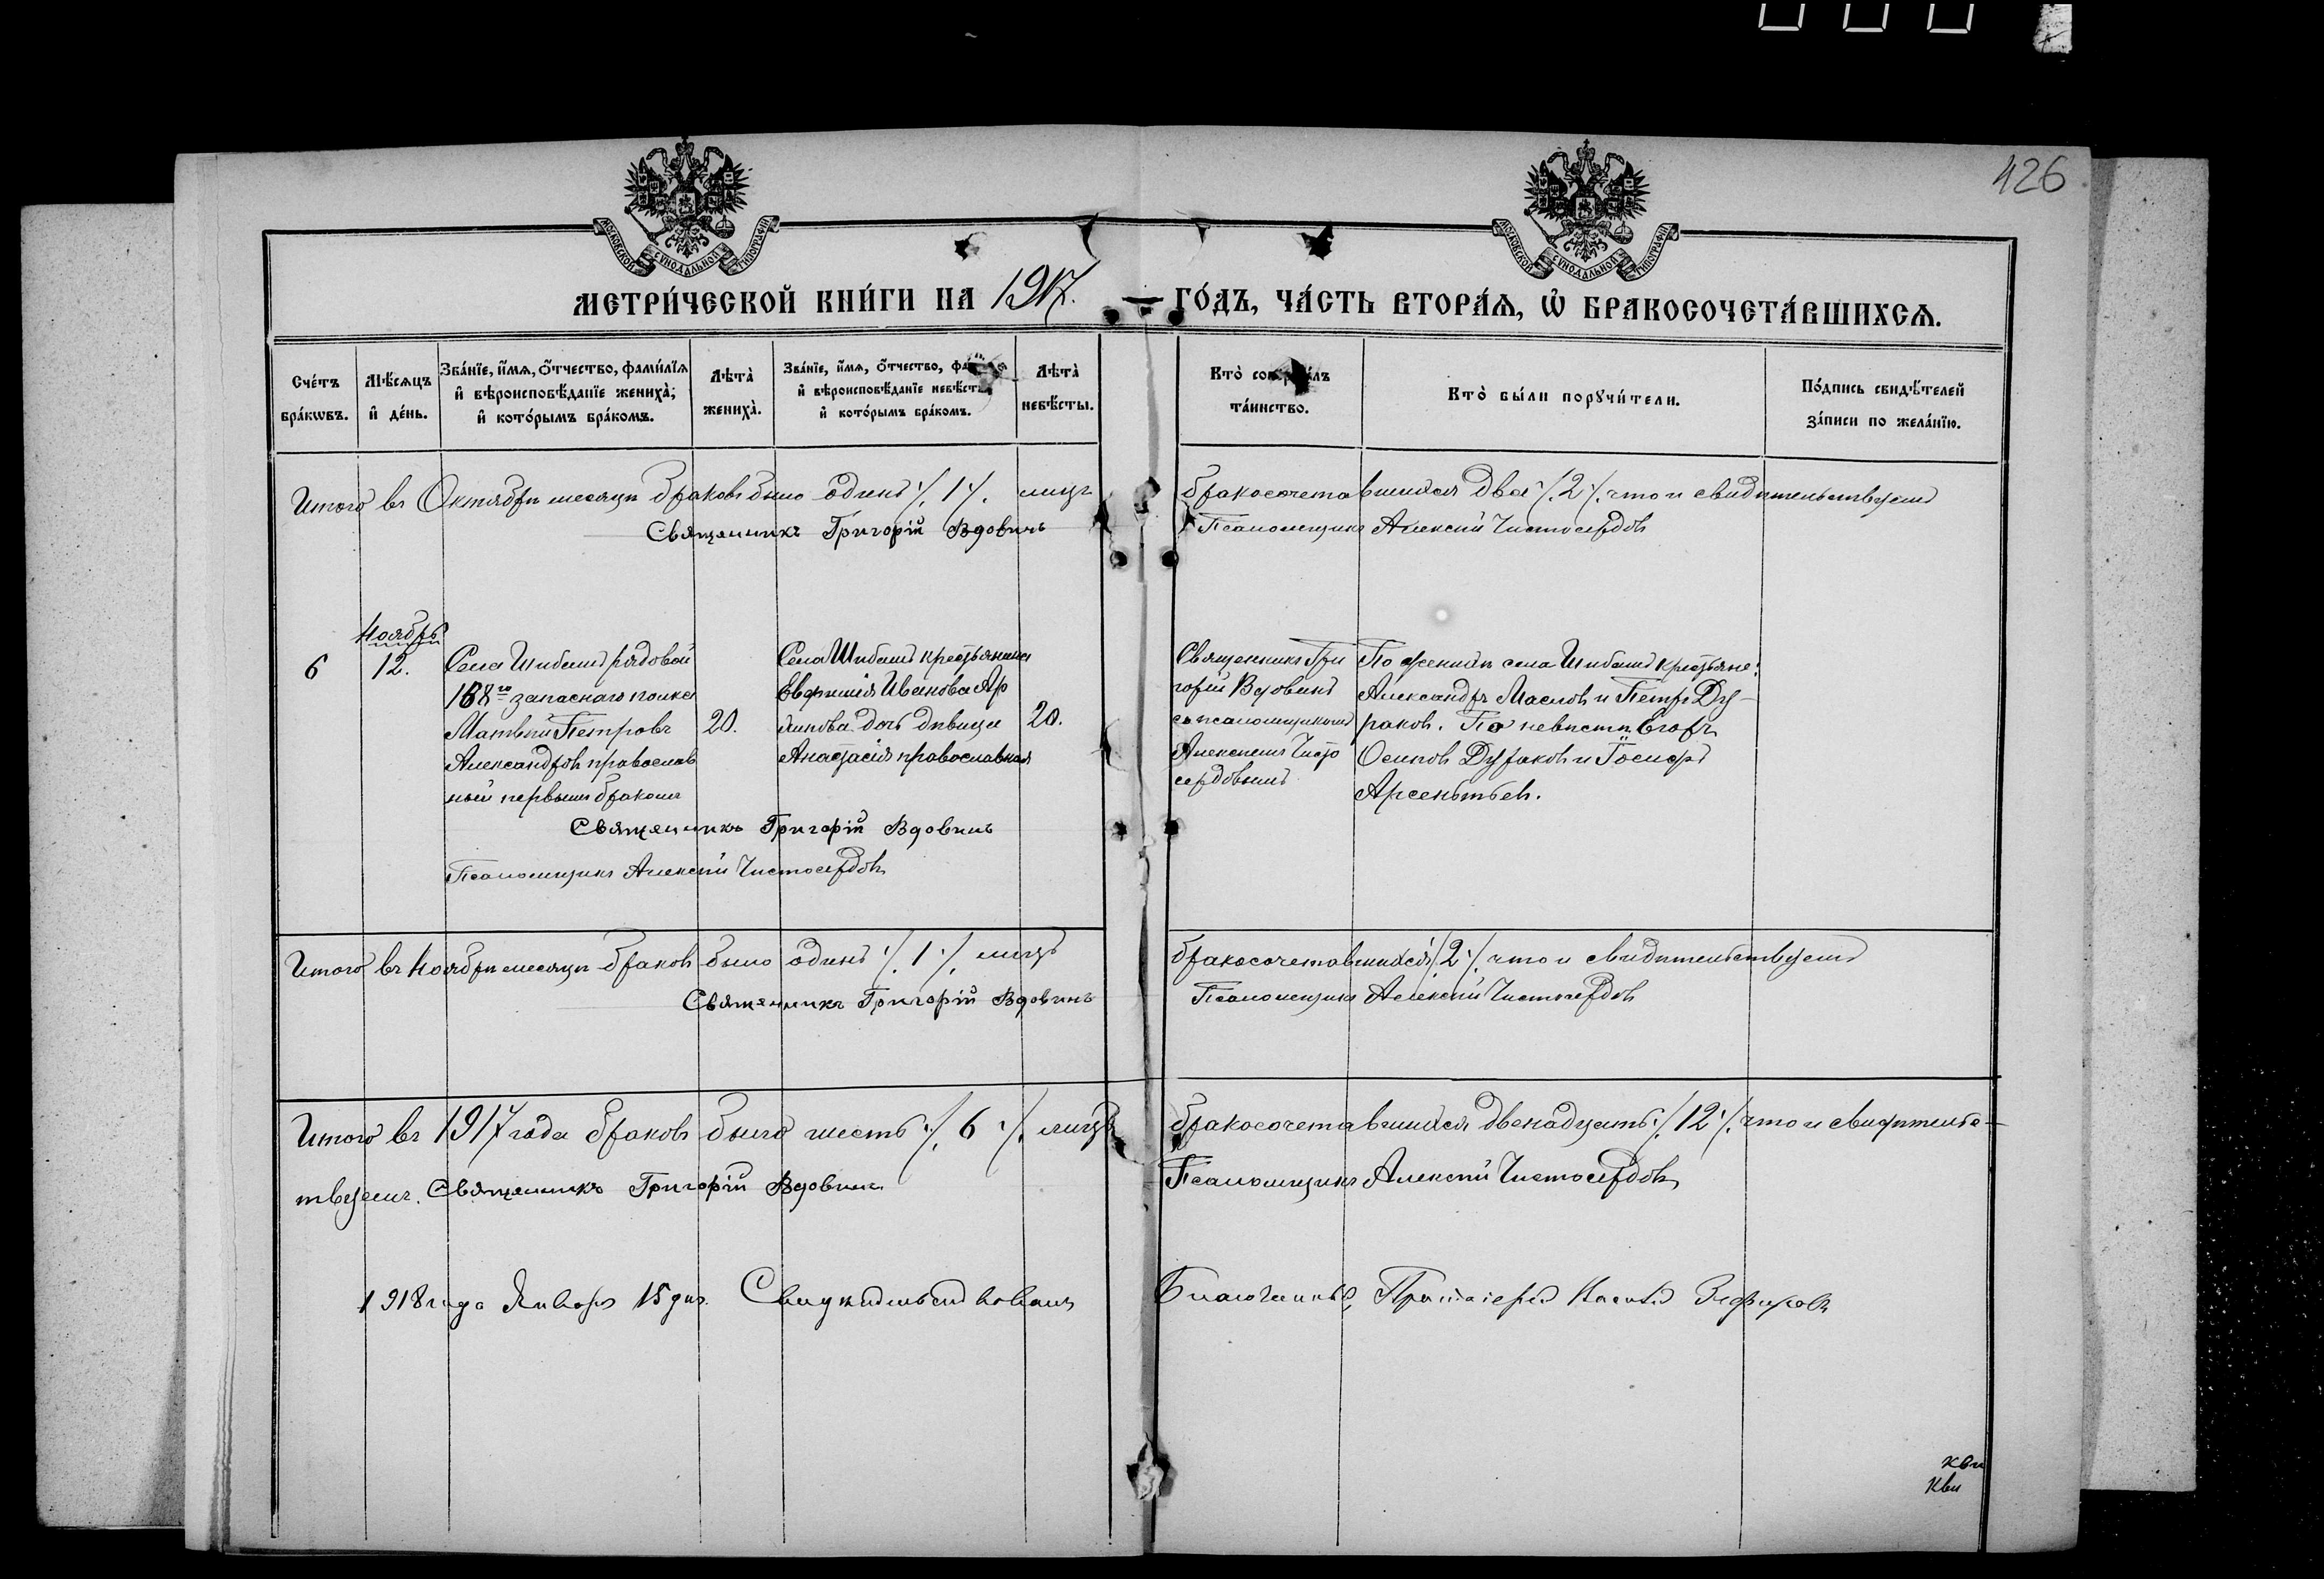 426
МОСКОВСКОЙ СѴНОДАЛЬНОЙ ТИПОГРАФІИ
МОСКОВСКОЙ СѴНОДАЛЬНОЙ ТИПОГРАФІИ
МЕТРИ́ЧЕСКОЙ КНИ́ГИ НА 1917. — ГО́ДЪ, ЧА́СТЬ ВТОРА́Ѧ, Ѡ҆ БРАКОСОЧЕТА́ВШИХСѦ.
Сче́тъ бра́кѡвъ.
Мѣ́сѧцъ и҆ де́нь.
Зва́нїе, и҆́мѧ, ѻ҆́тчество, фами́лїѧ и҆ вѣроисповѣ́данїе жениха̀; и҆ кото́рымъ бра́комъ.
Лѣта̀ жениха̀.
Зва́нїе, и҆́мѧ, ѻ҆́тчество, и҆ вѣроисповѣ́данїе невѣ́сты и҆ кото́рымъ бра́комъ.
Лѣта̀ невѣ́сты.
Кто̀ соверша́лъ та́инство.
Кто̀ бы́ли порꙋчи́тели.
По́дпись свидѣ́телей за́писи по жела́нїю.
Итого въ Октябрѣ месяцѣ браковъ было одинъ ./. 1 ./. лицъ бракосочетавшихся два ./. 2 ./. что и свидѣтельствуемъ
Священникъ Григорій Вдовинъ Псаломщикъ Алексѣй Чистосердовъ
Ноябрь
6
12.
Села Шибаш рядовой
168го запаснаго полка
Матвѣй Петровъ
Александровъ православ
ный первымъ бракомъ
20.
Села Шибаш крестьянина
Евфимія Иванова Ар
дочь дѣвица
Анастасія православная
20.
Священникъ Гри
горій Вдовинъ
съ псаломщикомъ
Алексѣемъ Чисто
сердовымъ
По женихѣ села Шибаш крестьяне:
Александръ Масловъ и Петръ Ду-
раковъ. По невѣстѣ Егоръ
Осиповъ Дураковъ и Іосифъ
Арсентьевъ.
Священникъ Григорій Вдовинъ
Псаломщикъ Алексѣй Чистосердовъ
Итого въ Ноябрѣ месяцѣ браковъ было одинъ ./. 1 ./. лицъ бракосочетавшихся ./. 2 ./. что и свидѣтельствуемъ
Священникъ Григорій Вдовинъ Псаломщикъ Алексѣй Чистосердовъ
Итого въ 1917 года браковъ было шесть ./. 6 ./. лицъ бракосочетавшихся двенадцать ./. 12 ./. что и свидѣтельс-
твуемъ. Священникъ Григорій Вдовинъ Псаломщикъ Алексѣй Чистосердовъ
1918 года Января 15 дня. Свидѣтельствовалъ Благочинный, Протоіерей Зефировъ